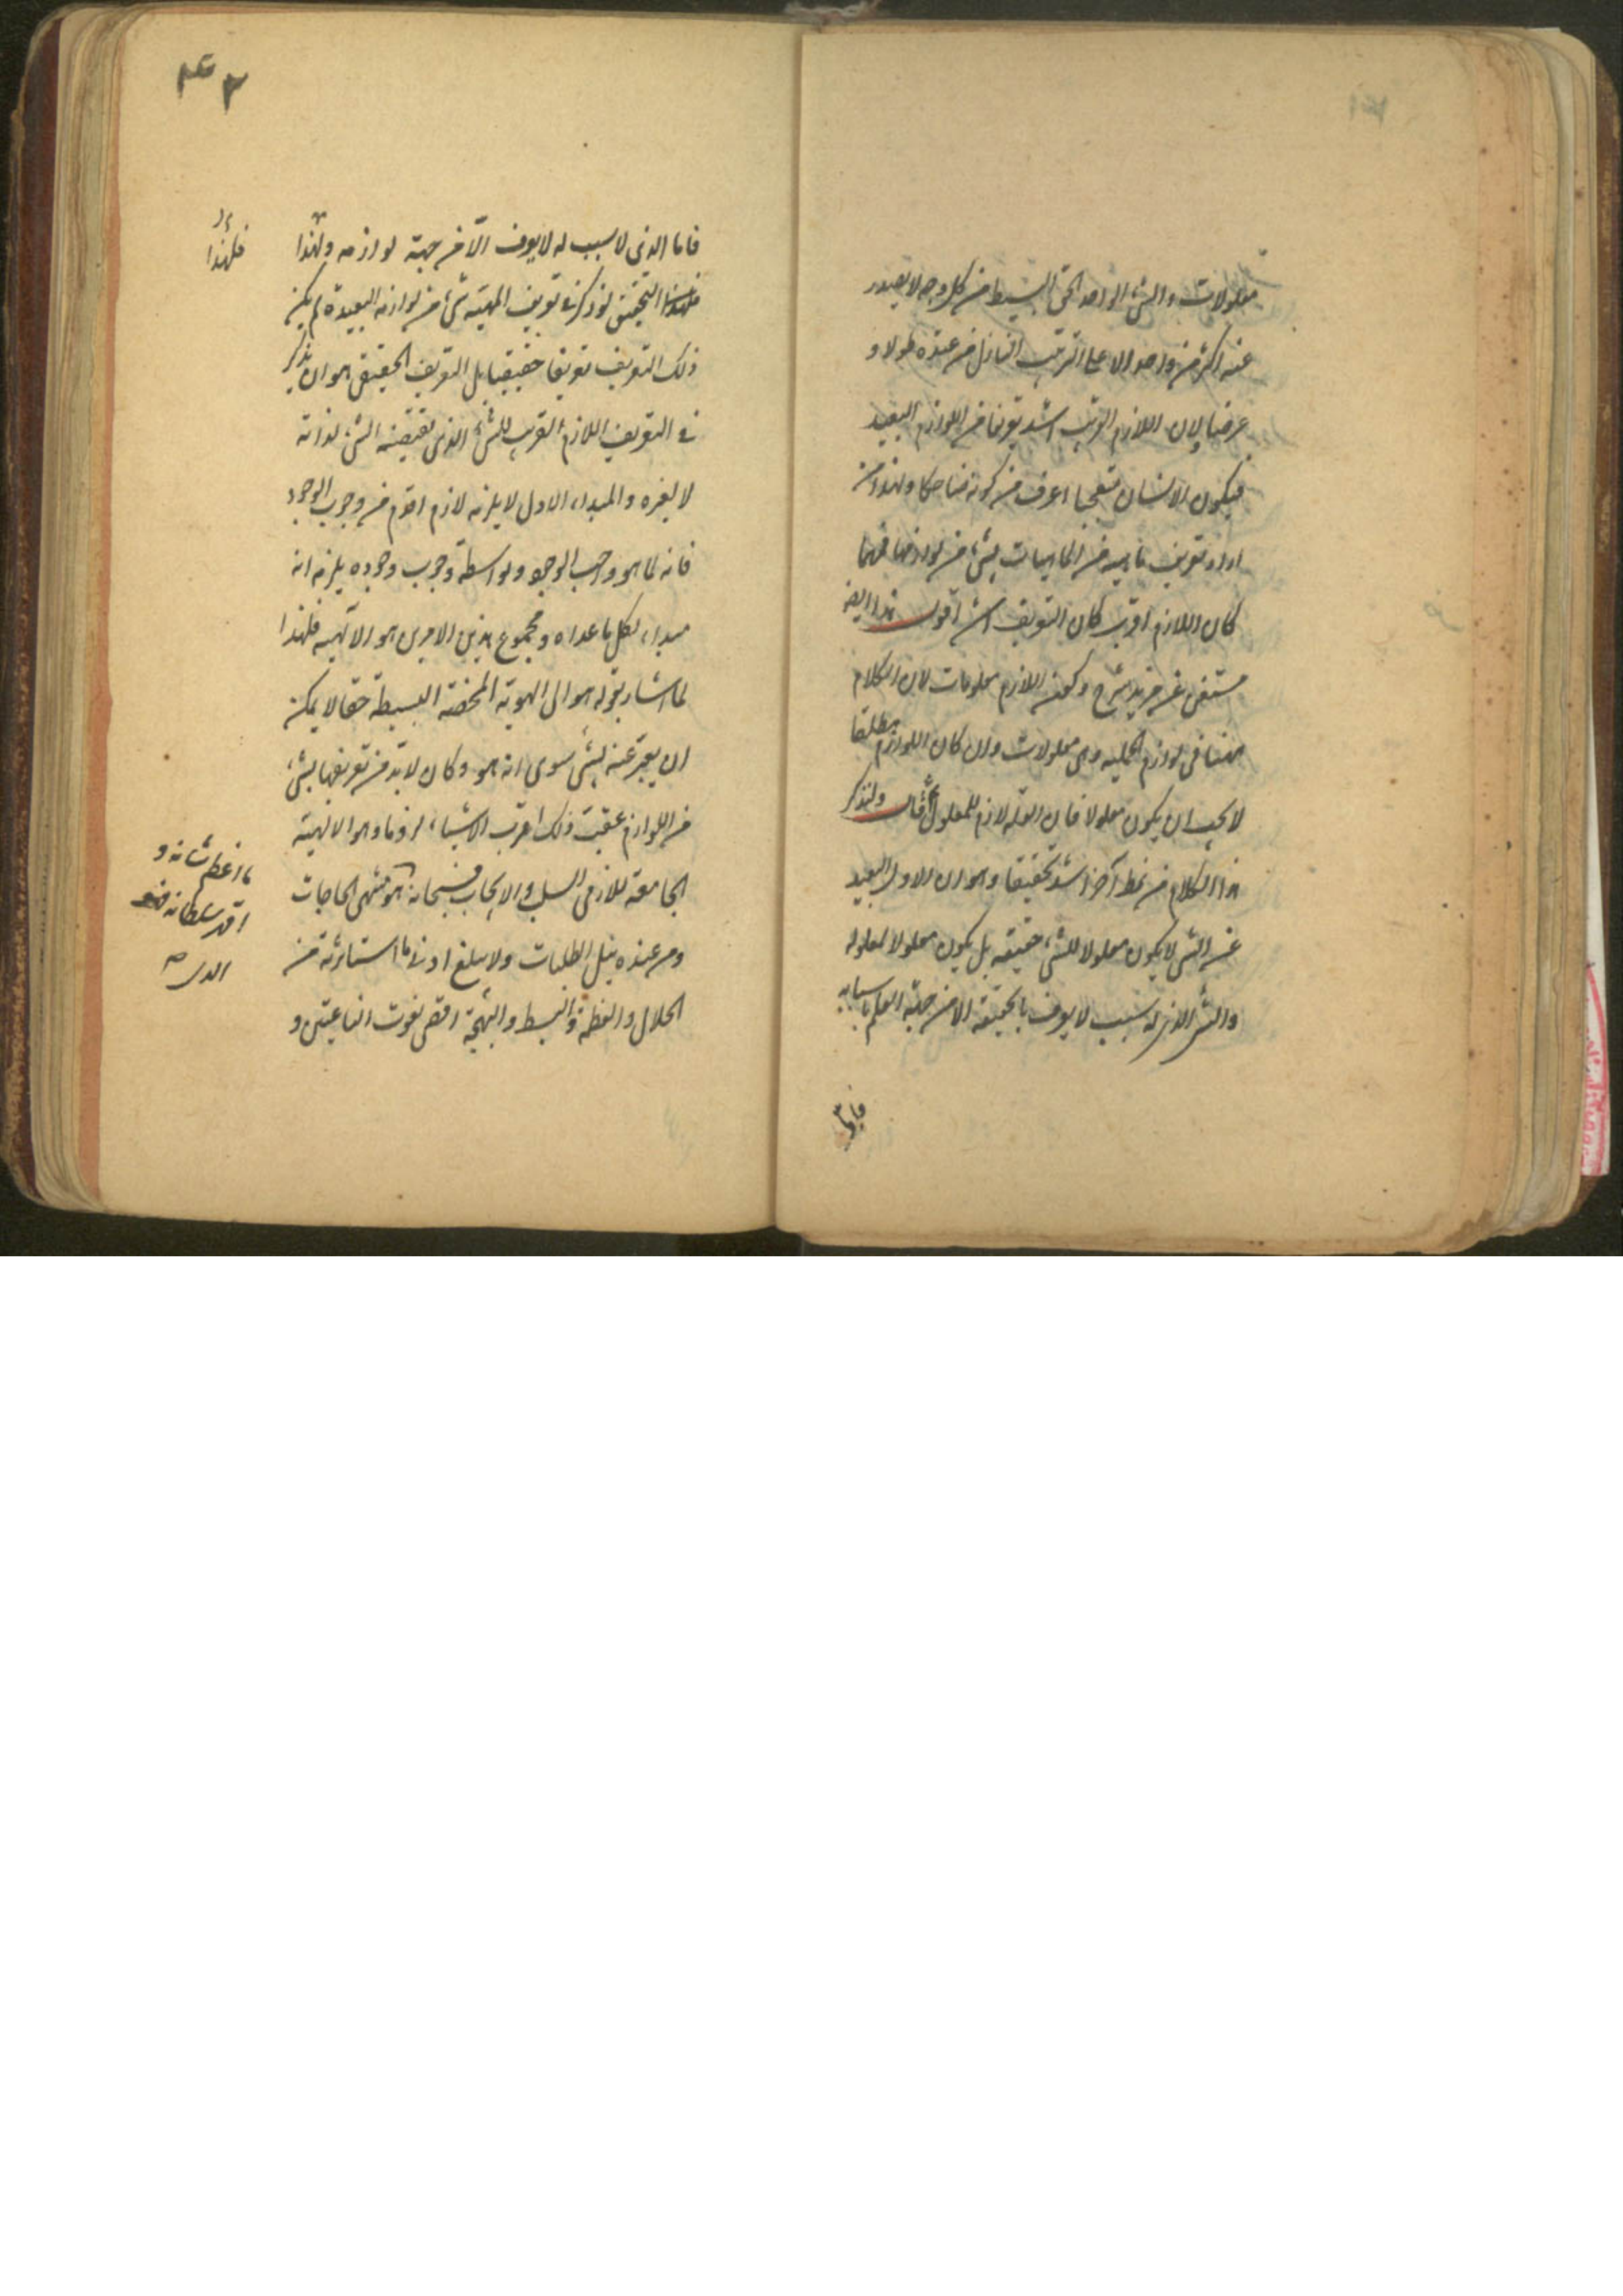 معلولات والشئ الواحد الحق البسيط من كل وجه لا يصدر
عنه اكثر من واحد الا على الترتيب النازل من عنده طولا و
عرضا ولان اللازم القريب اشد تعريفا من اللوازم البعيد
فيكون الانسان متعجبا اعرف من كونه ضاحكا ولهذا من
اراد تعريف ماهيه من الماهيات بشئ من لوازمها فمهما
كان اللازم اقرب كان التعريف اشد اقول هذا ايضا
مستغن عن مزيد شرح وكون اللازم معلومات لان الكلام
ههنا فى لوازم الجليه وهى معلولات وان كان اللوازم مطلقا
لا يجب ان يكون معلولا فان العله لازم للمعلول ثم قال ولنذكر
هذا الكلام من نمط آخر اشد تحقيقا وهو ان اللازم البعيد
عن الشئ لا يكون معلولا للشئ حقيقه بل يكون معلولا لمعلوله
والشئ الذى له سبب لا يعرف بالحقيقة الا من جهة العلم باسبابه
فاما
فاما الذى لا سبب له لا يعرف الا من جهة لوازمه ولهذا
فلهذا التحقيق لو ذكر فى تعريف المهية شئ من لوازمه البعيدة لم يكن
ذلك التعريف تعريفا حقيقيا بل التعريف الحقيقى هو ان يذكر
فى التعريف اللازم القريب للشئ الذى يقتضيه الشئ لذاته
لا لغيره والمبداء الاول لا يلزمه لازم اقدم من وجوب الوجود
فانه لما هو واجب الوجود وبواسطة وجوب وجوده يلزمه انه
مبداء لكل ما عداه ومجموع هذين الامرين هو الالهيه فلهذا
لما اشار بقوله هو الى الهوية المحضة البسيطة حقا لا يمكن
ان يعبر عنه بشئ سوى انه هو وكان لابد من تعريفها بشئ
من اللوازم عقبت ذلك اقرب الاشياء لزوما وهو الالهية
الجامعة للازمى السلب والايجاب فسبحانه هو منتهى الحاجات
ومن عنده نيل الطلبات ولا يبلغ ادنى ما استاثرته من
الجلال والعظمة والبسط والبهجة اقصى نعوت الناعتين و
فلهذا
ما اعظم شانه و
اقهر سلطانه فهو
الذى صه